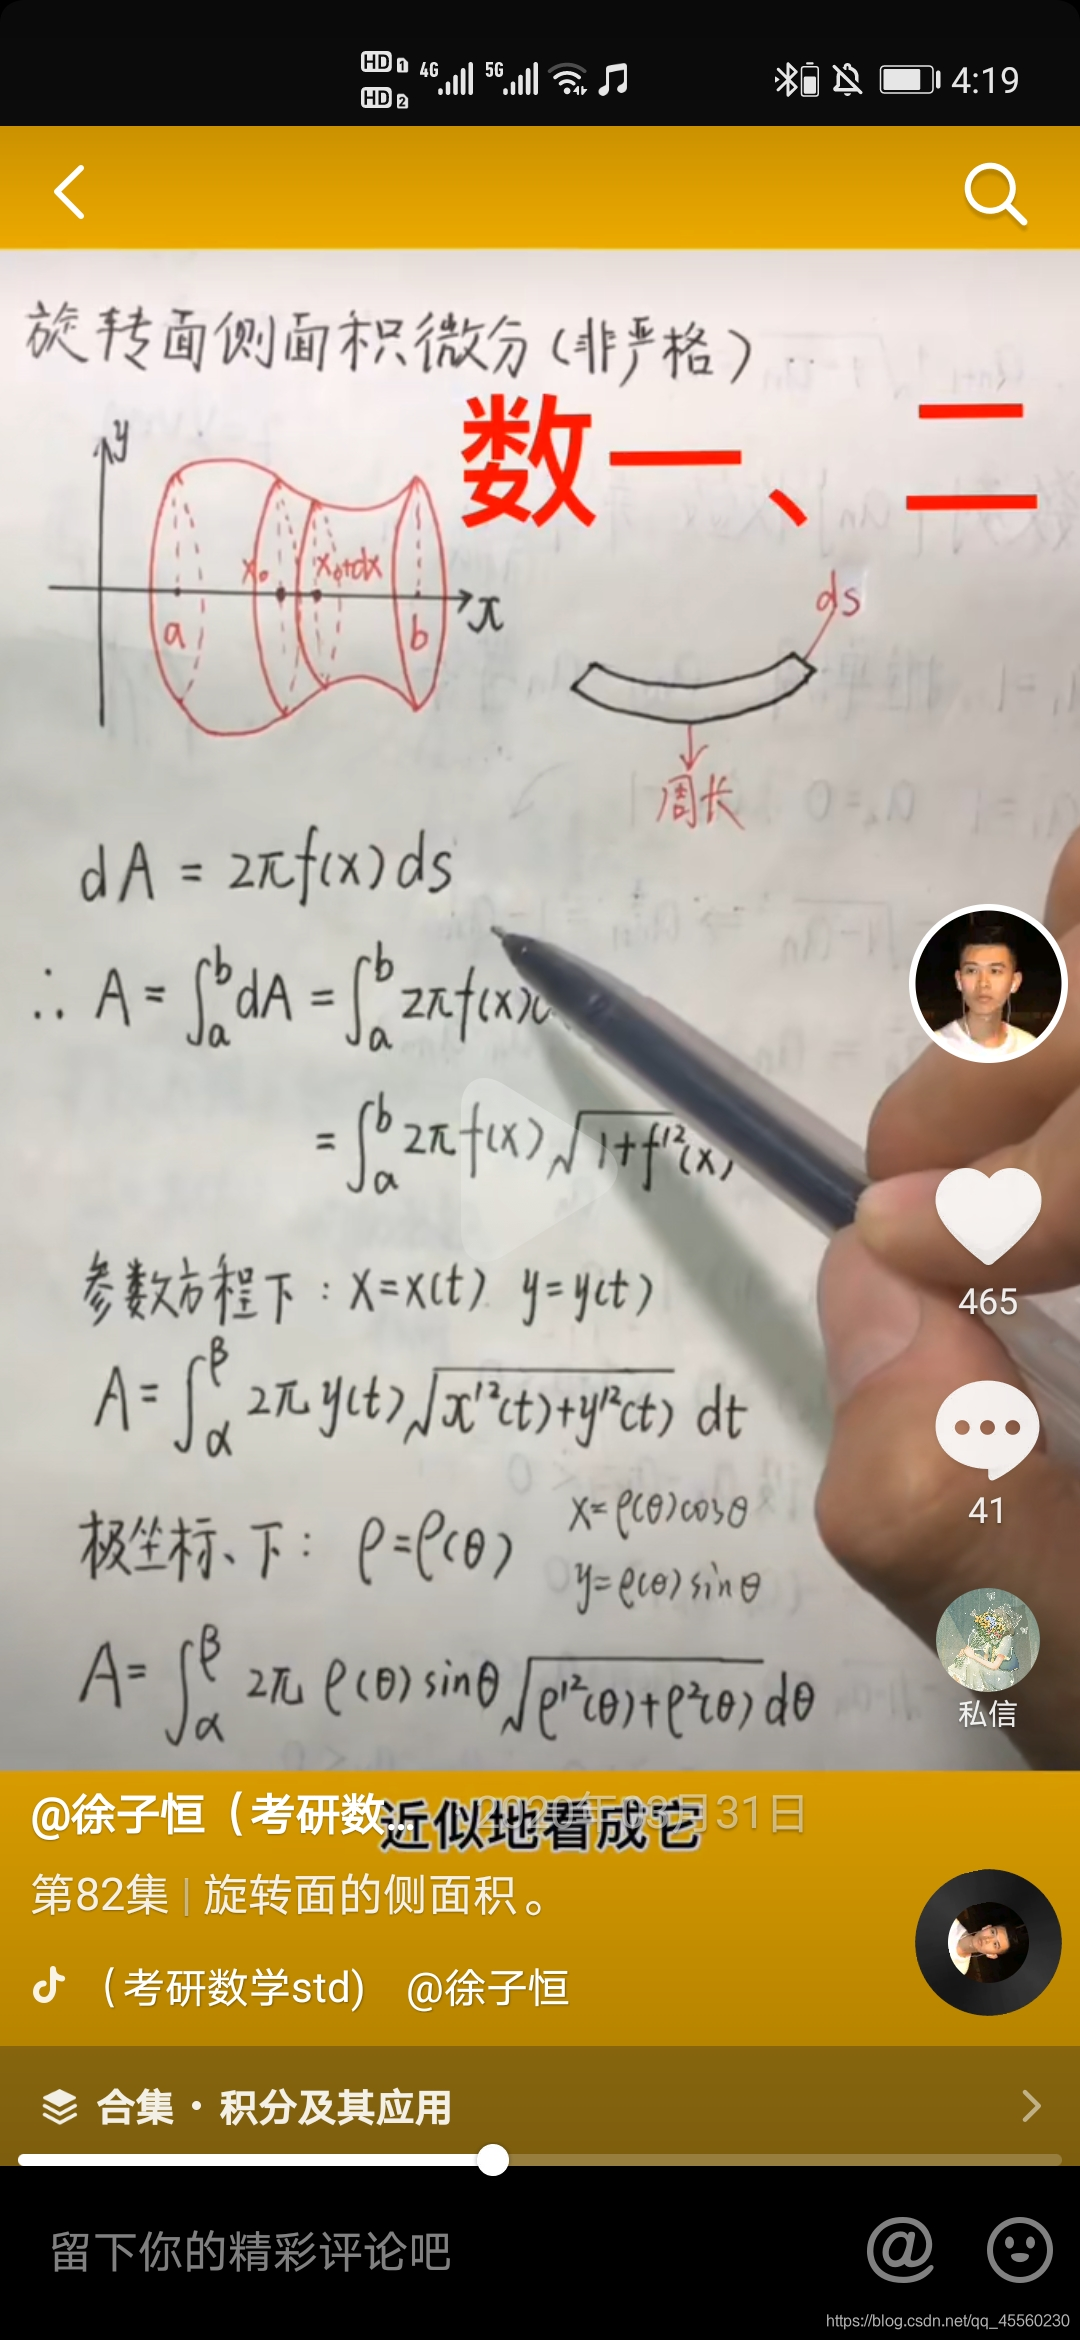 HD 1 4G 5G 4:19
HD 2
旋转面侧面积微分(非严格)
数一、二
y
x₀ x₀+dx
x
a b
ds
周长
dA = 2πf(x)ds
∴ A = ∫ₐᵇ dA = ∫ₐᵇ 2πf(x)
= ∫ₐᵇ 2πf(x)√1+f'²(x)
参数方程下: x=x(t) y=y(t)
A = ∫_α^β 2πy(t)√x'²(t)+y'²(t) dt
极坐标、下: ρ=ρ(θ)
x=ρ(θ)cosθ
y=ρ(θ)sinθ
A= ∫_α^β 2π ρ(θ)sinθ√ρ'²(θ)+ρ²(θ) dθ
465
41
私信
@徐子恒(考研数... 2020年03月31日
近似地看成它
第82集 | 旋转面的侧面积。
(考研数学std) @徐子恒
合集·积分及其应用
留下你的精彩评论吧
https://blog.csdn.net/qq_45560230